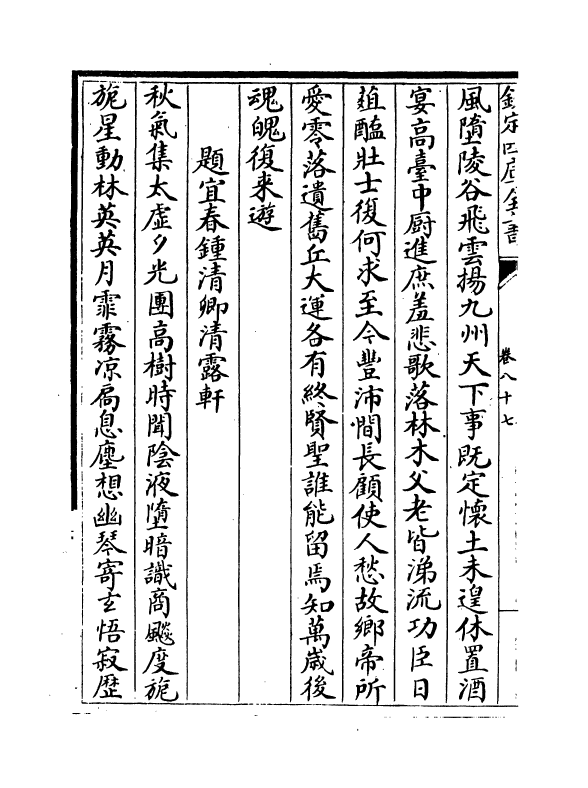 欽定四庫全書
卷八十七
風墮陵谷飛雲揚九州天下事既定懷土未遑休置酒
宴高臺中厨進庶羞悲歌落林木父老皆涕流功臣日
葅醢壯士復何求至今豐沛間長顧使人愁故鄉帝所
愛零落遺舊丘大運各有終賢聖誰能留焉知萬歲後
魂魄復来遊
題宜春鍾清卿清露軒
秋氣集太虚夕光團高樹時聞陰液墮暗識商飇度旎
旎星動林英英月霏霧凉扄息塵想幽琴寄玄悟寂歴